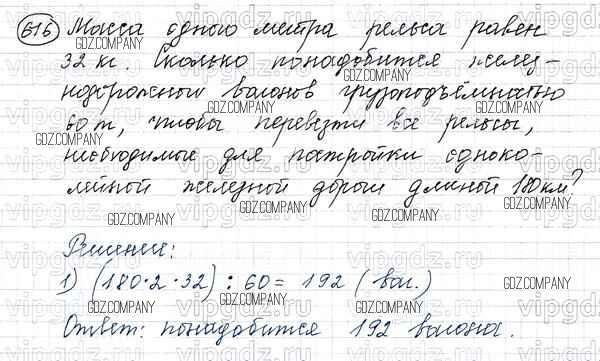 616 Масса одного метра рельса равен
32 кг. Сколько понадобится желез-
нодорожном вагонов грузоподъёмностью
60 т, чтобы перевезти все рельсы,
необходимые для постройки одноко-
лейной железной дороги длиной 180 км?
Решение:
1) (180·2·32) : 60 = 192 (ваг.)
Ответ: понадобится 192 вагона.
GDZ.COMPANY
vipgdz.ru